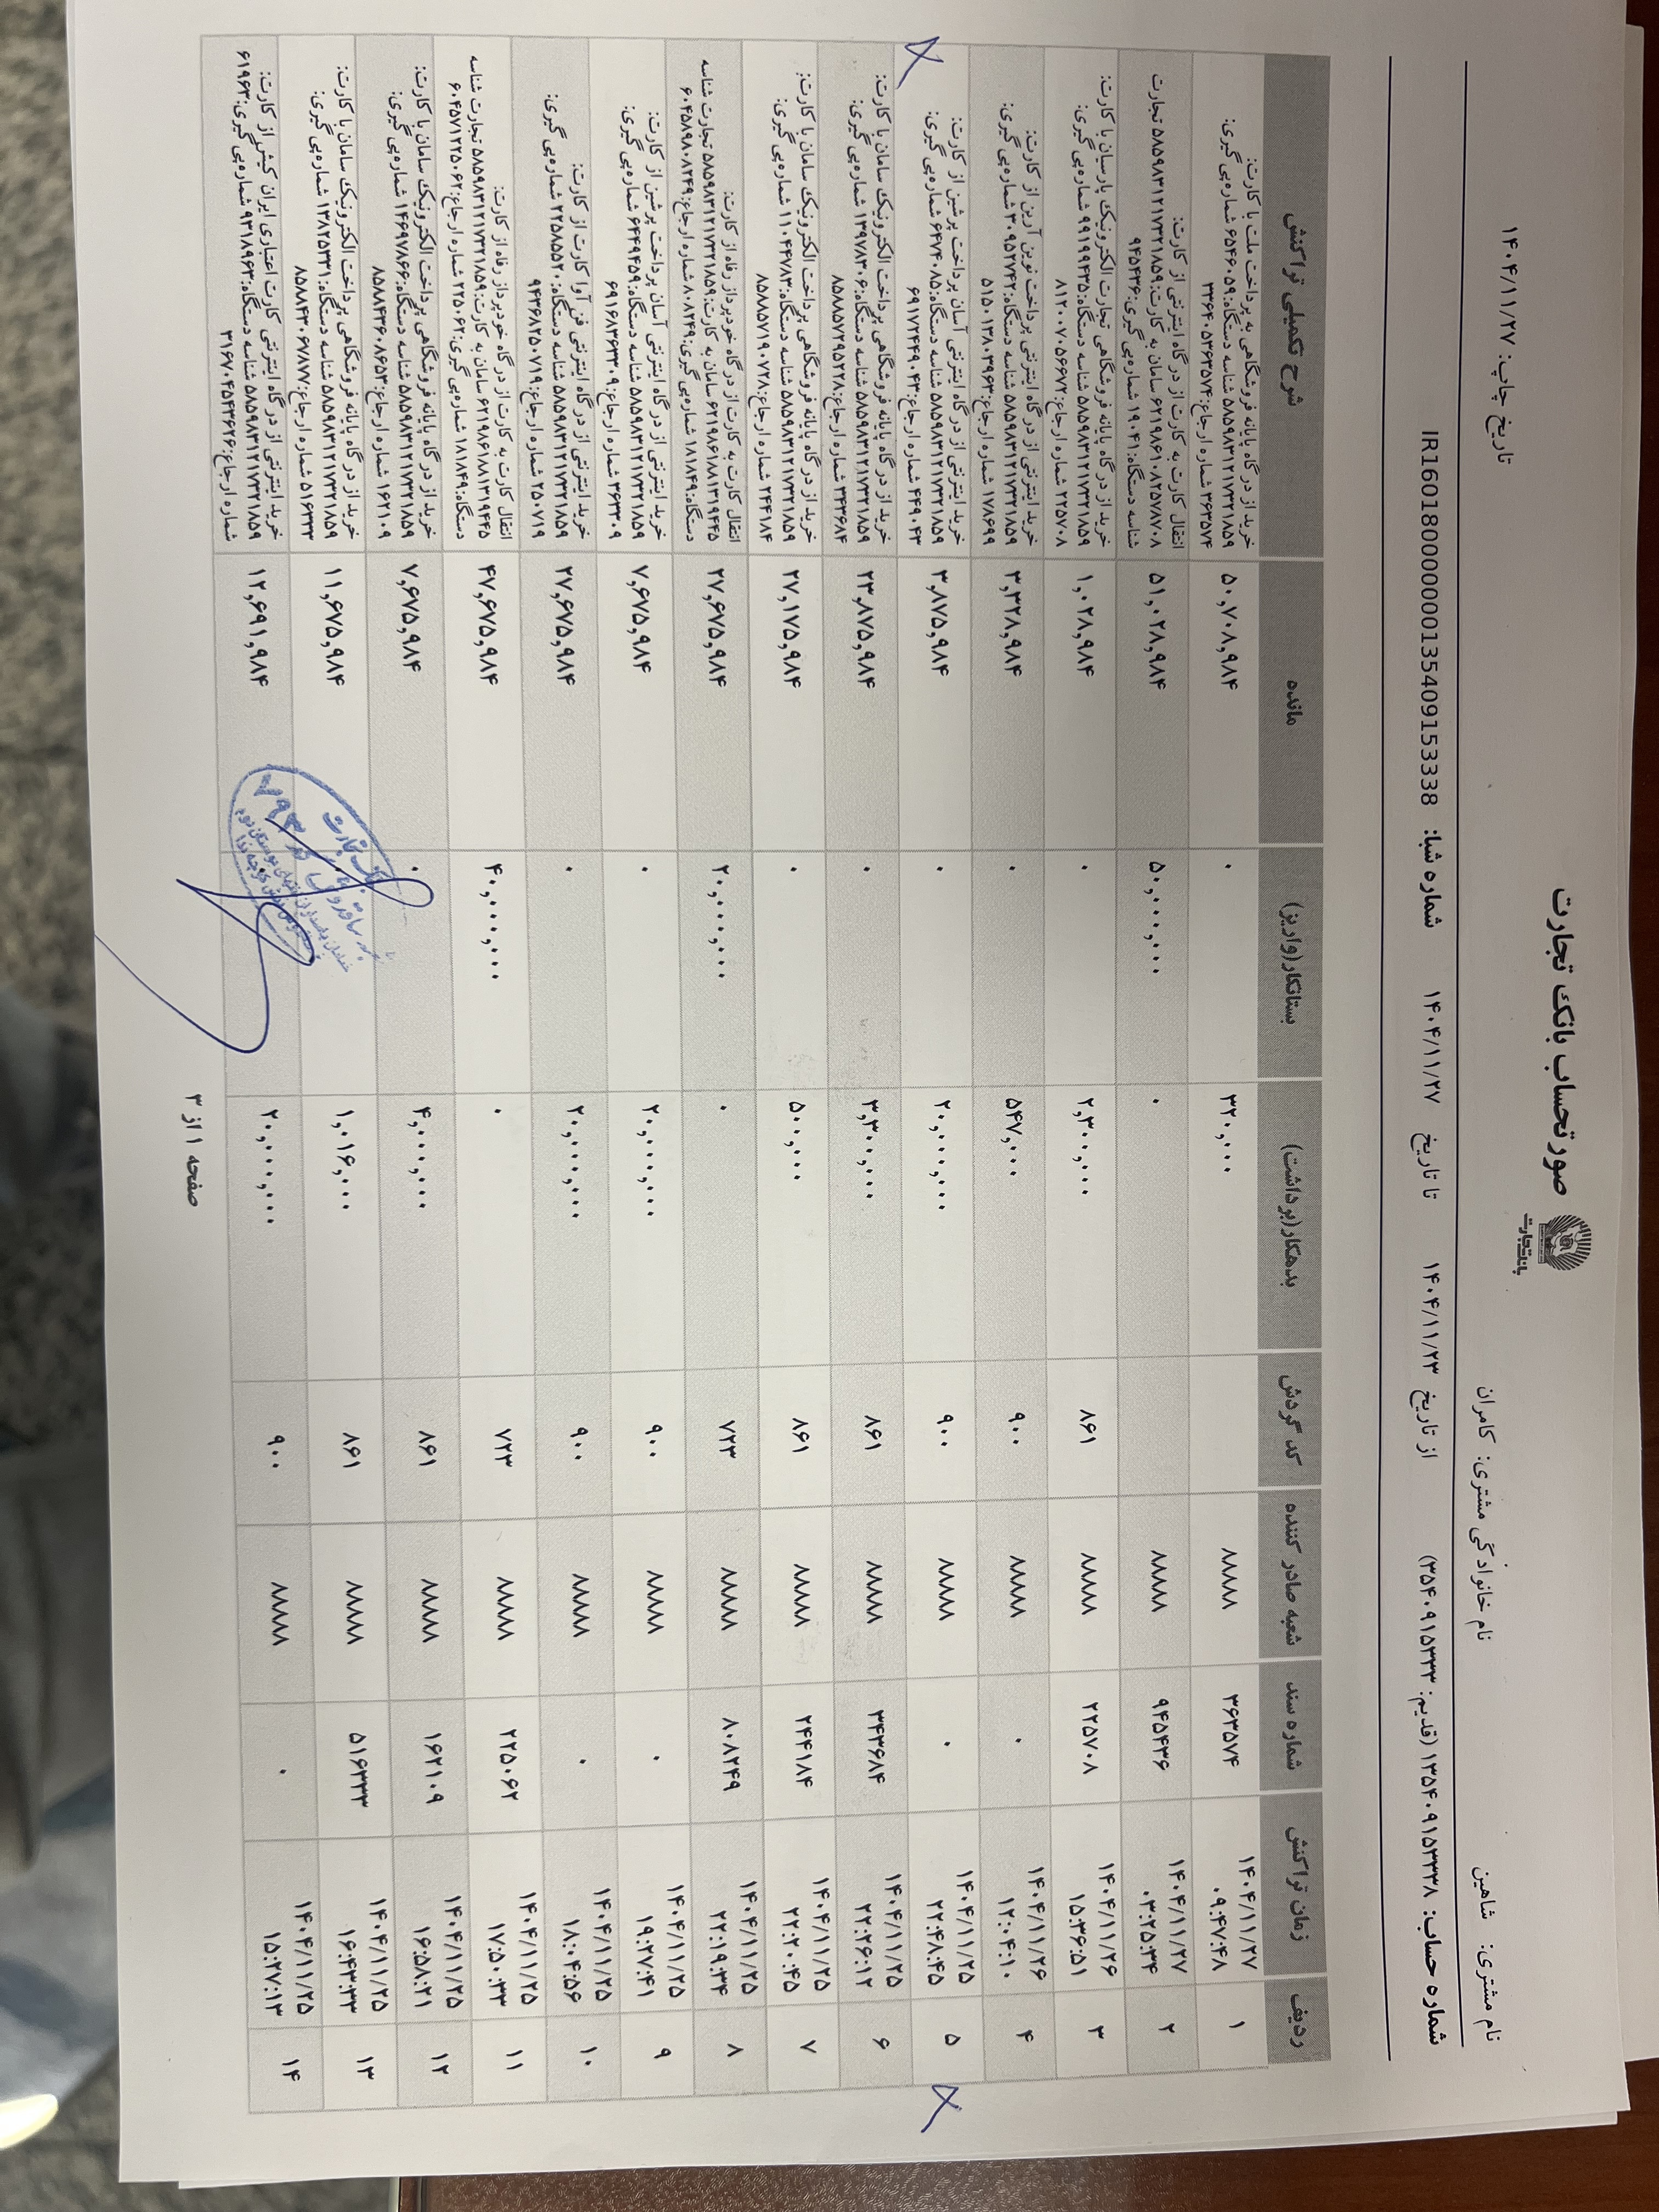 صورتحساب بانک تجارت
بانک تجارت
تاریخ چاپ: ۱۴۰۴/۱۱/۲۷
نام مشتری: شاهین
نام خانوادگی مشتری: کامران
شماره حساب: ۱۳۵۴۰۹۱۵۳۳۳۸ (قدیم: ۳۵۴۰۹۱۵۳۳۳)
از تاریخ ۱۴۰۴/۱۱/۲۳ تا تاریخ ۱۴۰۴/۱۱/۲۷
شماره شبا: IR160180000000013540915338
ردیف زمان تراکنش شماره سند شعبه صادر کننده کد گردش بدهکار(برداشت) بستانکار(واریز) مانده شرح تکمیلی تراکنش
۱ ۱۴۰۴/۱۱/۲۷ ۰۹:۴۷:۴۸ ۳۶۳۵۷۴ ۸۸۸۸۸ ۳۲۰,۰۰۰ ۰ ۵۰,۷۰۸,۹۸۴ خرید از درگاه پایانه فروشگاهی به پرداخت ملت با کارت:
۵۸۵۹۸۳۱۲۱۷۳۲۱۸۵۹ شناسه دستگاه:۶۵۴۶۰۵۹ شماره‌پی گیری:
۳۶۳۵۷۴ شماره ارجاع:۳۳۶۴۰۵۳۶۳۵۷۴
۲ ۱۴۰۴/۱۱/۲۷ ۰۳:۲۵:۳۴ ۹۴۵۴۳۶ ۸۸۸۸۸ ۰ ۵۰,۰۰۰,۰۰۰ ۵۱,۰۲۸,۹۸۴ انتقال کارت به کارت از درگاه اینترنتی از کارت:
۶۲۱۹۸۶۱۰۸۲۵۷۸۷۰۸ سامان به کارت:۵۸۵۹۸۳۱۲۱۷۳۲۱۸۵۹ تجارت
شناسه دستگاه:۱۹۰۴۱ شماره‌پی گیری:۹۴۵۴۳۶
۳ ۱۴۰۴/۱۱/۲۶ ۱۵:۳۶:۵۱ ۲۲۵۷۰۸ ۸۸۸۸۸ ۸۶۱ ۲,۳۰۰,۰۰۰ ۰ ۱,۰۲۸,۹۸۴ خرید از درگاه پایانه فروشگاهی تجارت الکترونیک پارسیان با کارت:
۵۸۵۹۸۳۱۲۱۷۳۲۱۸۵۹ شناسه دستگاه:۹۹۱۹۹۴۳۵ شماره‌پی گیری:
۲۲۵۷۰۸ شماره ارجاع:۸۱۲۰۰۷۰۵۶۶۷۲
۴ ۱۴۰۴/۱۱/۲۶ ۱۲:۰۴:۱۰ ۰ ۸۸۸۸۸ ۹۰۰ ۵۴۷,۰۰۰ ۰ ۳,۳۲۸,۹۸۴ خرید اینترنتی از درگاه اینترنتی پرداخت نوین آرین از کارت:
۵۸۵۹۸۳۱۲۱۷۳۲۱۸۵۹ شناسه دستگاه:۳۰۹۵۲۷۴۲ شماره‌پی گیری:
۱۷۸۶۹۹ شماره ارجاع:۵۱۵۰۱۳۸۰۳۹۶۳
۵ ۱۴۰۴/۱۱/۲۵ ۲۲:۴۸:۴۵ ۰ ۸۸۸۸۸ ۹۰۰ ۲۰,۰۰۰,۰۰۰ ۰ ۳,۸۷۵,۹۸۴ خرید اینترنتی از درگاه اینترنتی آسان پرداخت پرشین از کارت:
۵۸۵۹۸۳۱۲۱۷۳۲۱۸۵۹ شناسه دستگاه:۶۴۷۴۰۸۵ شماره‌پی گیری:
۴۴۹۰۴۳ شماره ارجاع:۶۹۱۷۲۴۴۹۰۴۳
۶ ۱۴۰۴/۱۱/۲۵ ۲۲:۲۶:۱۲ ۳۴۳۶۸۴ ۸۸۸۸۸ ۸۶۱ ۳,۳۰۰,۰۰۰ ۰ ۲۳,۸۷۵,۹۸۴ خرید از درگاه پایانه فروشگاهی پرداخت الکترونیک سامان با کارت:
۵۸۵۹۸۳۱۲۱۷۳۲۱۸۵۹ شناسه دستگاه:۱۳۹۷۸۳۰۶ شماره‌پی گیری:
۳۴۳۶۸۴ شماره ارجاع:۸۵۸۸۵۷۲۹۵۲۲۸
۷ ۱۴۰۴/۱۱/۲۵ ۲۲:۲۰:۴۵ ۲۴۴۱۸۴ ۸۸۸۸۸ ۸۶۱ ۵۰۰,۰۰۰ ۰ ۲۷,۱۷۵,۹۸۴ خرید از درگاه پایانه فروشگاهی پرداخت الکترونیک سامان با کارت:
۵۸۵۹۸۳۱۲۱۷۳۲۱۸۵۹ شناسه دستگاه:۱۱۰۴۴۷۸۳ شماره‌پی گیری:
۲۴۴۱۸۴ شماره ارجاع:۸۵۸۸۵۷۱۹۰۷۲۸
۸ ۱۴۰۴/۱۱/۲۵ ۲۲:۱۹:۳۴ ۸۰۸۲۴۹ ۸۸۸۸۸ ۷۲۳ ۰ ۲۰,۰۰۰,۰۰۰ ۲۷,۶۷۵,۹۸۴ انتقال کارت به کارت از درگاه خودپرداز رفاه از کارت:
۶۲۱۹۸۶۱۸۸۱۳۱۹۴۴۵ سامان به کارت:۵۸۵۹۸۳۱۲۱۷۳۲۱۸۵۹ تجارت شناسه
دستگاه:۱۸۱۸۴۹ شماره‌پی گیری:۸۰۸۲۴۹ شماره ارجاع:۶۰۴۵۸۹۸۰۸۲۴۹
۹ ۱۴۰۴/۱۱/۲۵ ۱۹:۲۷:۴۱ ۰ ۸۸۸۸۸ ۹۰۰ ۲۰,۰۰۰,۰۰۰ ۰ ۷,۶۷۵,۹۸۴ خرید اینترنتی از درگاه اینترنتی آسان پرداخت پرشین از کارت:
۵۸۵۹۸۳۱۲۱۷۳۲۱۸۵۹ شناسه دستگاه:۶۴۴۹۴۵۹ شماره‌پی گیری:
۳۶۳۳۰۹ شماره ارجاع:۶۹۱۶۸۳۶۳۳۰۹
۱۰ ۱۴۰۴/۱۱/۲۵ ۱۸:۰۴:۵۶ ۰ ۸۸۸۸۸ ۹۰۰ ۲۰,۰۰۰,۰۰۰ ۰ ۲۷,۶۷۵,۹۸۴ خرید اینترنتی از درگاه اینترنتی فن آوا کارت از کارت:
۵۸۵۹۸۳۱۲۱۷۳۲۱۸۵۹ شناسه دستگاه:۲۲۵۸۵۵۲۰ شماره‌پی گیری:
۲۵۰۷۱۹ شماره ارجاع:۹۴۳۶۸۲۵۰۷۱۹
۱۱ ۱۴۰۴/۱۱/۲۵ ۱۷:۵۰:۳۳ ۲۲۵۰۶۲ ۸۸۸۸۸ ۷۲۳ ۰ ۴۰,۰۰۰,۰۰۰ ۴۷,۶۷۵,۹۸۴ انتقال کارت به کارت از درگاه خودپرداز رفاه از کارت:
۶۲۱۹۸۶۱۸۸۱۳۱۹۴۴۵ سامان به کارت:۵۸۵۹۸۳۱۲۱۷۳۲۱۸۵۹ تجارت شناسه
دستگاه:۱۸۱۸۴۹ شماره‌پی گیری:۲۲۵۰۶۲ شماره ارجاع:۶۰۴۵۷۱۲۲۵۰۶۲
۱۲ ۱۴۰۴/۱۱/۲۵ ۱۶:۵۸:۲۱ ۱۶۲۱۰۹ ۸۸۸۸۸ ۸۶۱ ۴,۰۰۰,۰۰۰ ۰ ۷,۶۷۵,۹۸۴ خرید از درگاه پایانه فروشگاهی پرداخت الکترونیک سامان با کارت:
۵۸۵۹۸۳۱۲۱۷۳۲۱۸۵۹ شناسه دستگاه:۱۴۶۹۷۸۶۶ شماره‌پی گیری:
۱۶۲۱۰۹ شماره ارجاع:۸۵۸۸۴۳۶۰۸۶۵۳
۱۳ ۱۴۰۴/۱۱/۲۵ ۱۶:۴۳:۳۳ ۵۱۶۳۳۳ ۸۸۸۸۸ ۸۶۱ ۱,۰۱۶,۰۰۰ ۱۱,۶۷۵,۹۸۴ خرید از درگاه پایانه فروشگاهی پرداخت الکترونیک سامان با کارت:
۵۸۵۹۸۳۱۲۱۷۳۲۱۸۵۹ شناسه دستگاه:۱۳۸۲۵۳۳۱ شماره‌پی گیری:
۵۱۶۳۳۳ شماره ارجاع:۸۵۸۸۴۳۰۶۷۸۷۷
۱۴ ۱۴۰۴/۱۱/۲۵ ۱۵:۲۷:۱۳ ۰ ۸۸۸۸۸ ۹۰۰ ۲۰,۰۰۰,۰۰۰ ۱۲,۶۹۱,۹۸۴ خرید اینترنتی از درگاه اینترنتی کارت اعتباری ایران کیش از کارت:
۵۸۵۹۸۳۱۲۱۷۳۲۱۸۵۹ شناسه دستگاه:۹۳۱۸۹۶۳ شماره‌پی گیری:۶۱۹۶۳
شماره ارجاع:۳۱۶۷۰۴۵۴۳۶۲۶
بانک تجارت
۷۹۳
صفحه ۱ از ۳